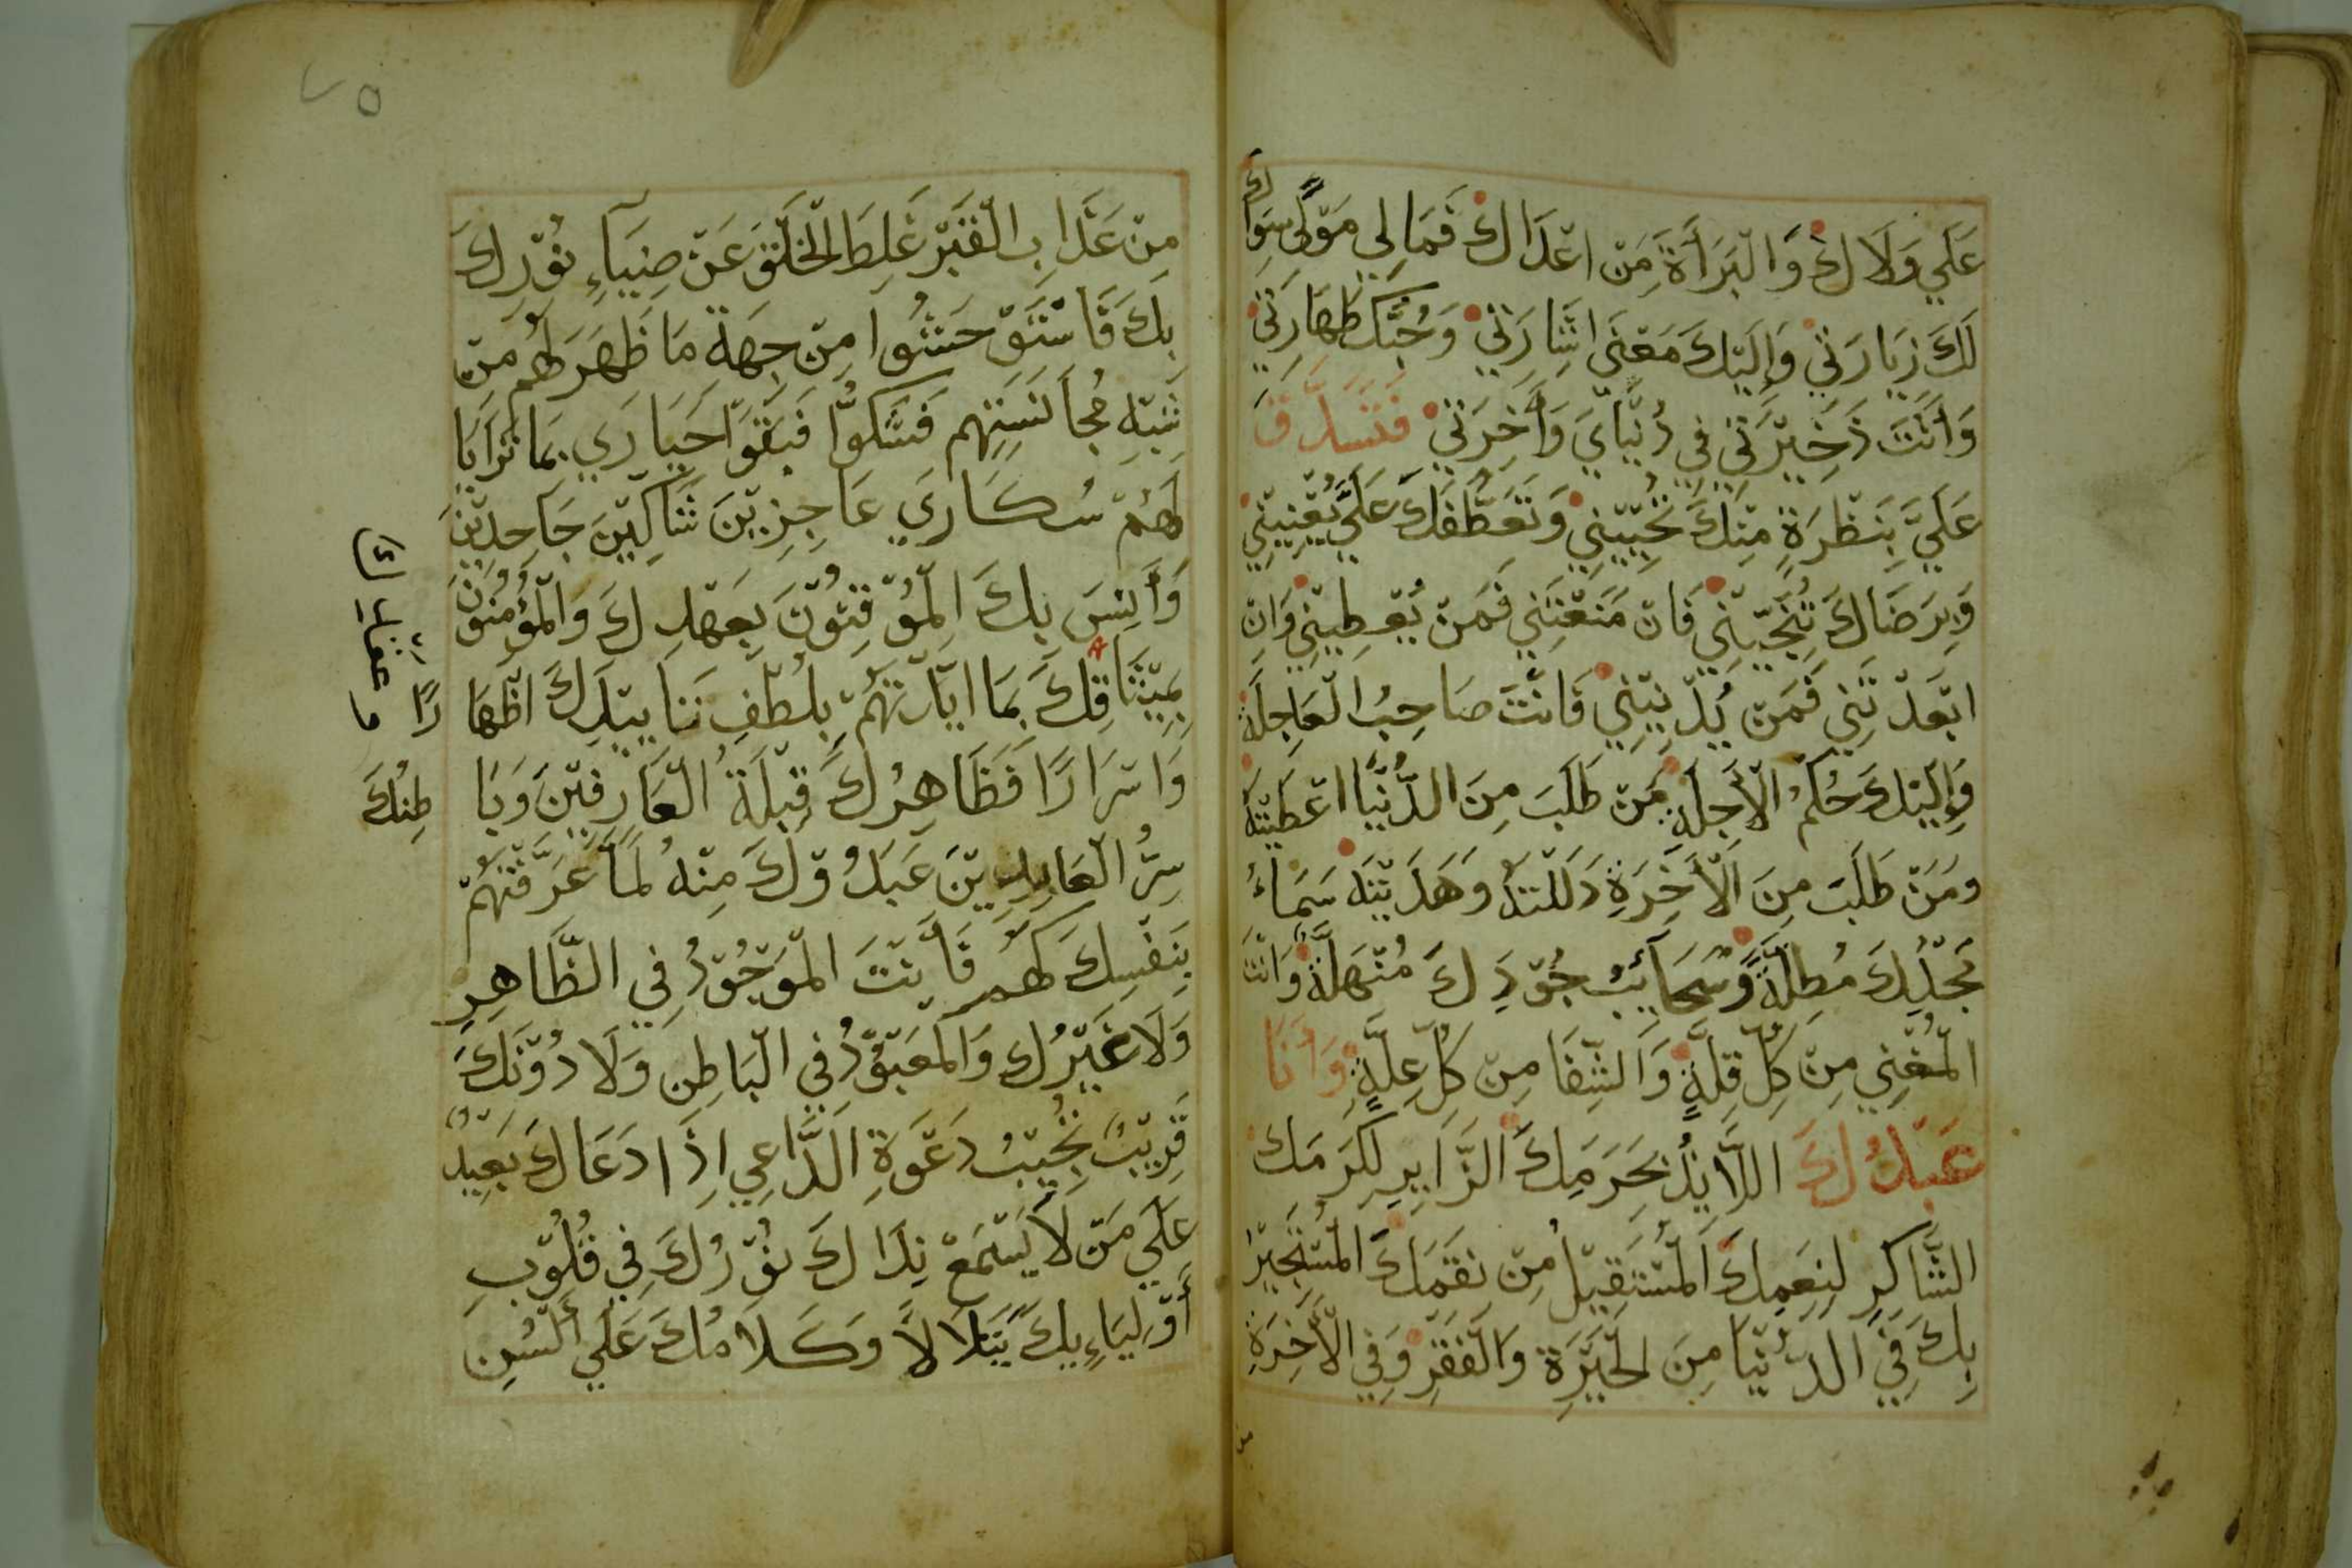 عَلَي وَلَاكَ وَالْبَرَأَةَ مِنْ اعْدَاكَ فَمَا لِي مَوْلًى سِوَاكَ
لَكَ زِيَارَتِي وَإِلَيْكَ مَعْنَى اشَارَتِي وَحُبُّكَ طَهَارَتِي
وَأَنْتَ ذَخِيْرَتِي فِي دُنْيَايَ وَأَخِرَتِي فَتَصَدَّقْ
عَلَيَّ بِنَظْرَةٍ مِنْكَ تُحْيِيْنِي وَتَعَطُّفَكَ عَلَيَّ يُغْنِيْنِي
وَبِرِضَاكَ تُنَجِّيْنِي فَانْ مَنَعْتَنِي فَمَنْ يُعْطِيْنِي وَانْ
ابْعَدْتَنِي فَمَنْ يُدْنِيْنِي فَانْتَ صَاحِبُ الْعَاجِلَةِ
وَإِلَيْكَ حُكْمُ الْأَجِلَةِ مَنْ طَلَبَ مِنَ الدُّنْيَا اعْطَيْتَهُ
ومَنْ طَلَبَ مِنَ الْأَخِرَةِ دَلَلْتَهُ وَهَدَيْتَهُ سَمَاءُ
مَجْدِكَ مُطِلَّةٌ وَسَحَايِبُ جُوْدِكَ مُنْهَلَّةٌ وَانْتَ
الْمُغْنِي مِنْ كُلِّ قِلَّةٍ وَالشِّفَا مِنْ كُلِّ عِلَّةٍ وَأَنَا
عَبْدُكَ اللَّايِذُ بِحَرَمِكَ الزَّايِرِ لِكَرَمِكَ
الشَّاكِرِ لِنِعَمِكَ الْمُسْتَقِيْلُ مِنْ نِقَمِكَ الْمُسْتَجِيْرُ
بِكَ فِي الدُّنْيَا مِنَ الْحَيْرَةِ وَالْفَقْرِ وَفِي الْأَخِرَةِ
مِنْ عَذَابِ الْقَبْرِ غَلِطَ الْخَلْقُ عَنْ ضِيَاءِ نُوْرِكَ
بِكَ فَاسْتَوْحَشُوا مِنْ جِهَةِ مَا ظَهَرَ لَهُمْ مِنْ
شِبْهِ مُجَانَسَتِهِم فَشَكُّوا فَبَقَوْا حَيَارَي بِمَا تَرَايَا
لَهُمْ سُكَارَي عَاجِزِيْنَ شَاكِيْنَ جَاحِدِيْنَ
وَأَنِسَ بِكَ الْمُوْقِنُوْنَ بِعَهْدِكَ وَالْمُؤْمِنُوْنَ
بِمِيْثَاقِكَ بِمَا ايَّدْتَهُمْ بِلُطْفِ تَايِيْدِكَ اظْهَارًا
وَاسْرَارًا فَظَاهِرُكَ قِبْلَةُ الْعَارِفِيْنَ وَبَاطِنُكَ
سِرُّ الْعَابِدِيْنَ عَبَدُوْكَ مِنْهُ لَمَا عَرَّفْتَهُمْ
بِنَفْسِكَ لَهُمْ فَأَنْتَ الْمَوْجُوْدُ فِي الظَّاهِرِ
وَلَا غَيْرُكَ وَالْمَعْبُوْدُ فِي الْبَاطِنِ وَلَا دُوْنَكَ
قَرِيْبٌ تُجِيْبُ دَعْوَةَ الدَّاعِي اِذَا دَعَاكَ بَعِيْدٌ
عَلَي مَنْ لَا يَسْمَعْ نِدَاكَ نُوْرُكَ فِي قُلُوْبِ
أَوْلِيَاءِيكَ يَتَلَالَأ وَكَلَامُكَ عَلَي أَلْسُنِ